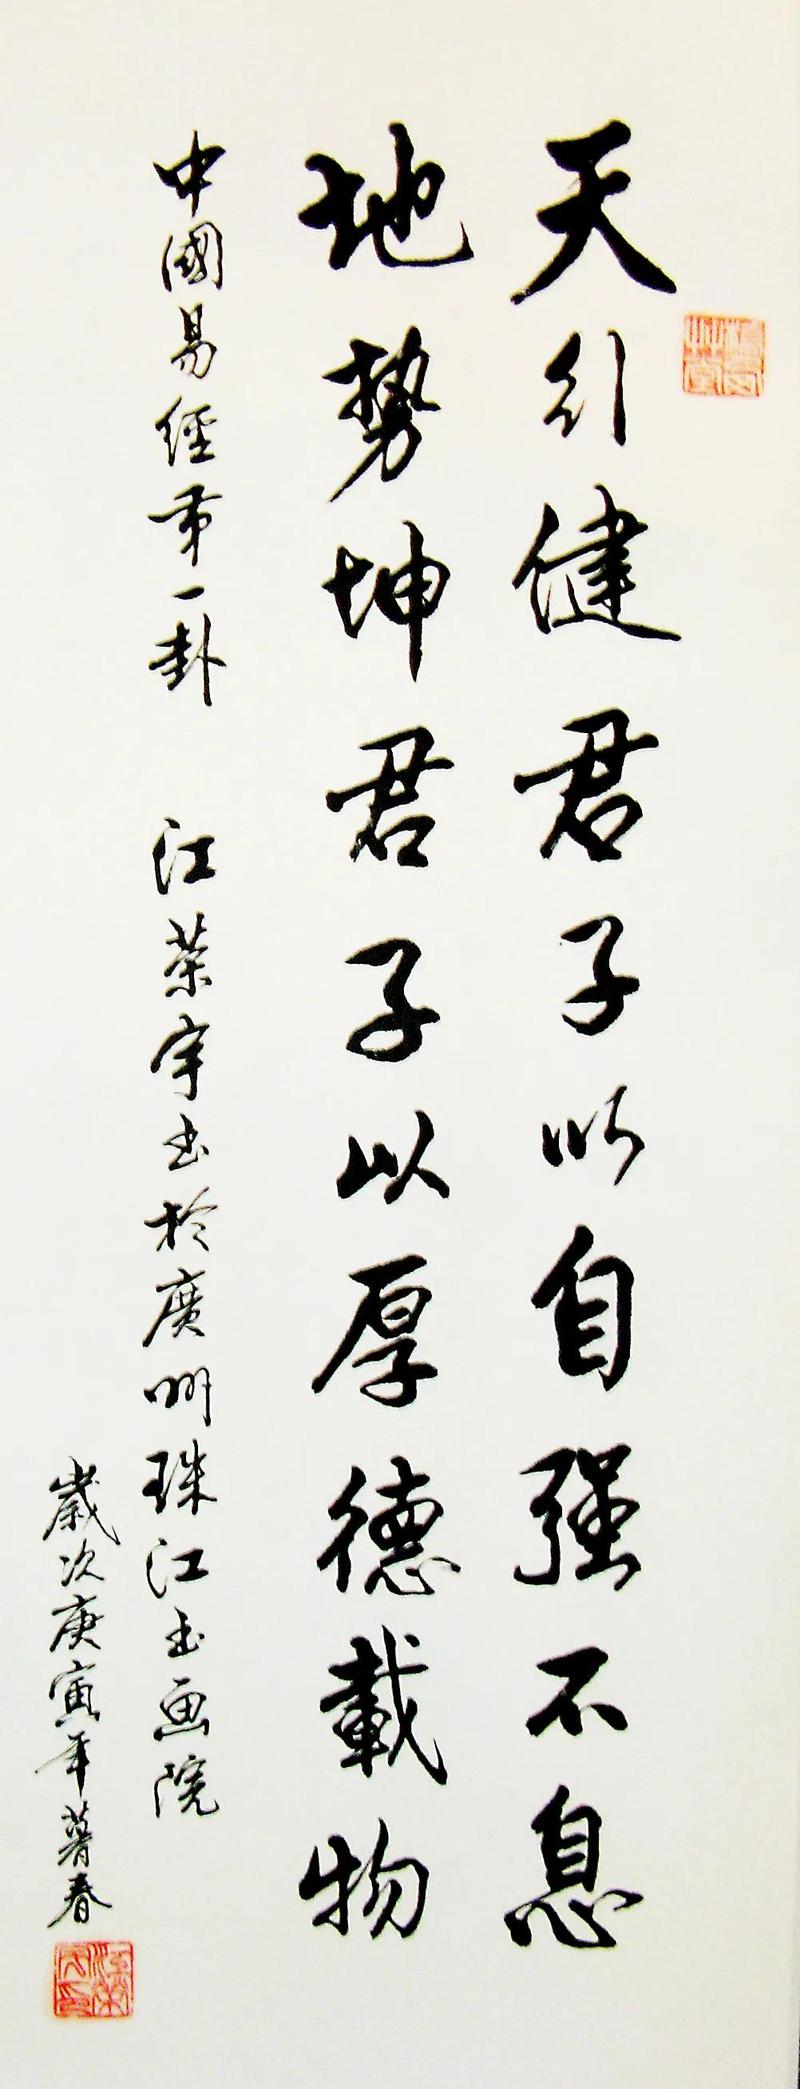 天行健君子以自强不息
地勢坤君子以厚德載物
中國易經第一卦 江榮宇书於廣州珠江书画院
歲次庚寅年暮春